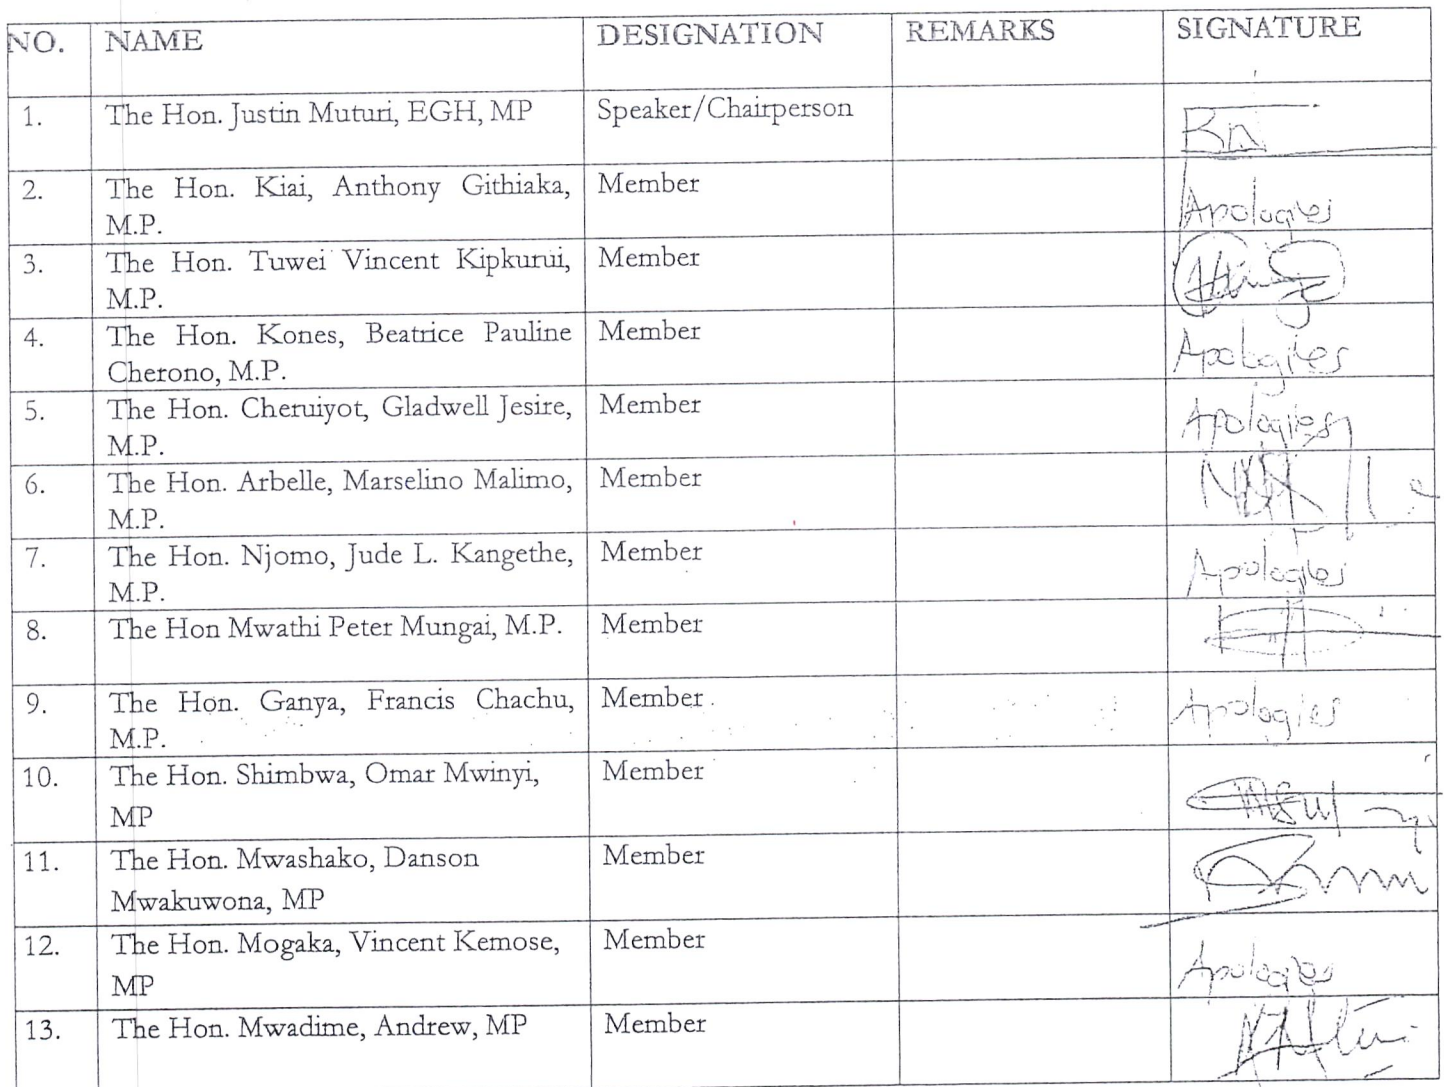 NO. NAME DESIGNATION REMARKS SIGNATURE
1. The Hon. Justin Muturi, EGH, MP Speaker/Chairperson
2. The Hon. Kiai, Anthony Githiaka, Member Apologies
M.P.
3. The Hon. Tuwei Vincent Kipkurui, Member
M.P.
4. The Hon. Kones, Beatrice Pauline Member Apologies
Cherono, M.P.
5. The Hon. Cheruiyot, Gladwell Jesire, Member Apologies
M.P.
6. The Hon. Arbelle, Marselino Malimo, Member
M.P.
7. The Hon. Njomo, Jude L. Kangethe, Member Apologies
M.P.
8. The Hon Mwathi Peter Mungai, M.P. Member
9. The Hon. Ganya, Francis Chachu, Member Apologies
M.P.
10. The Hon. Shimbwa, Omar Mwinyi, Member
MP
11. The Hon. Mwashako, Danson Member
Mwakuwona, MP
12. The Hon. Mogaka, Vincent Kemose, Member Apologies
MP
13. The Hon. Mwadime, Andrew, MP Member